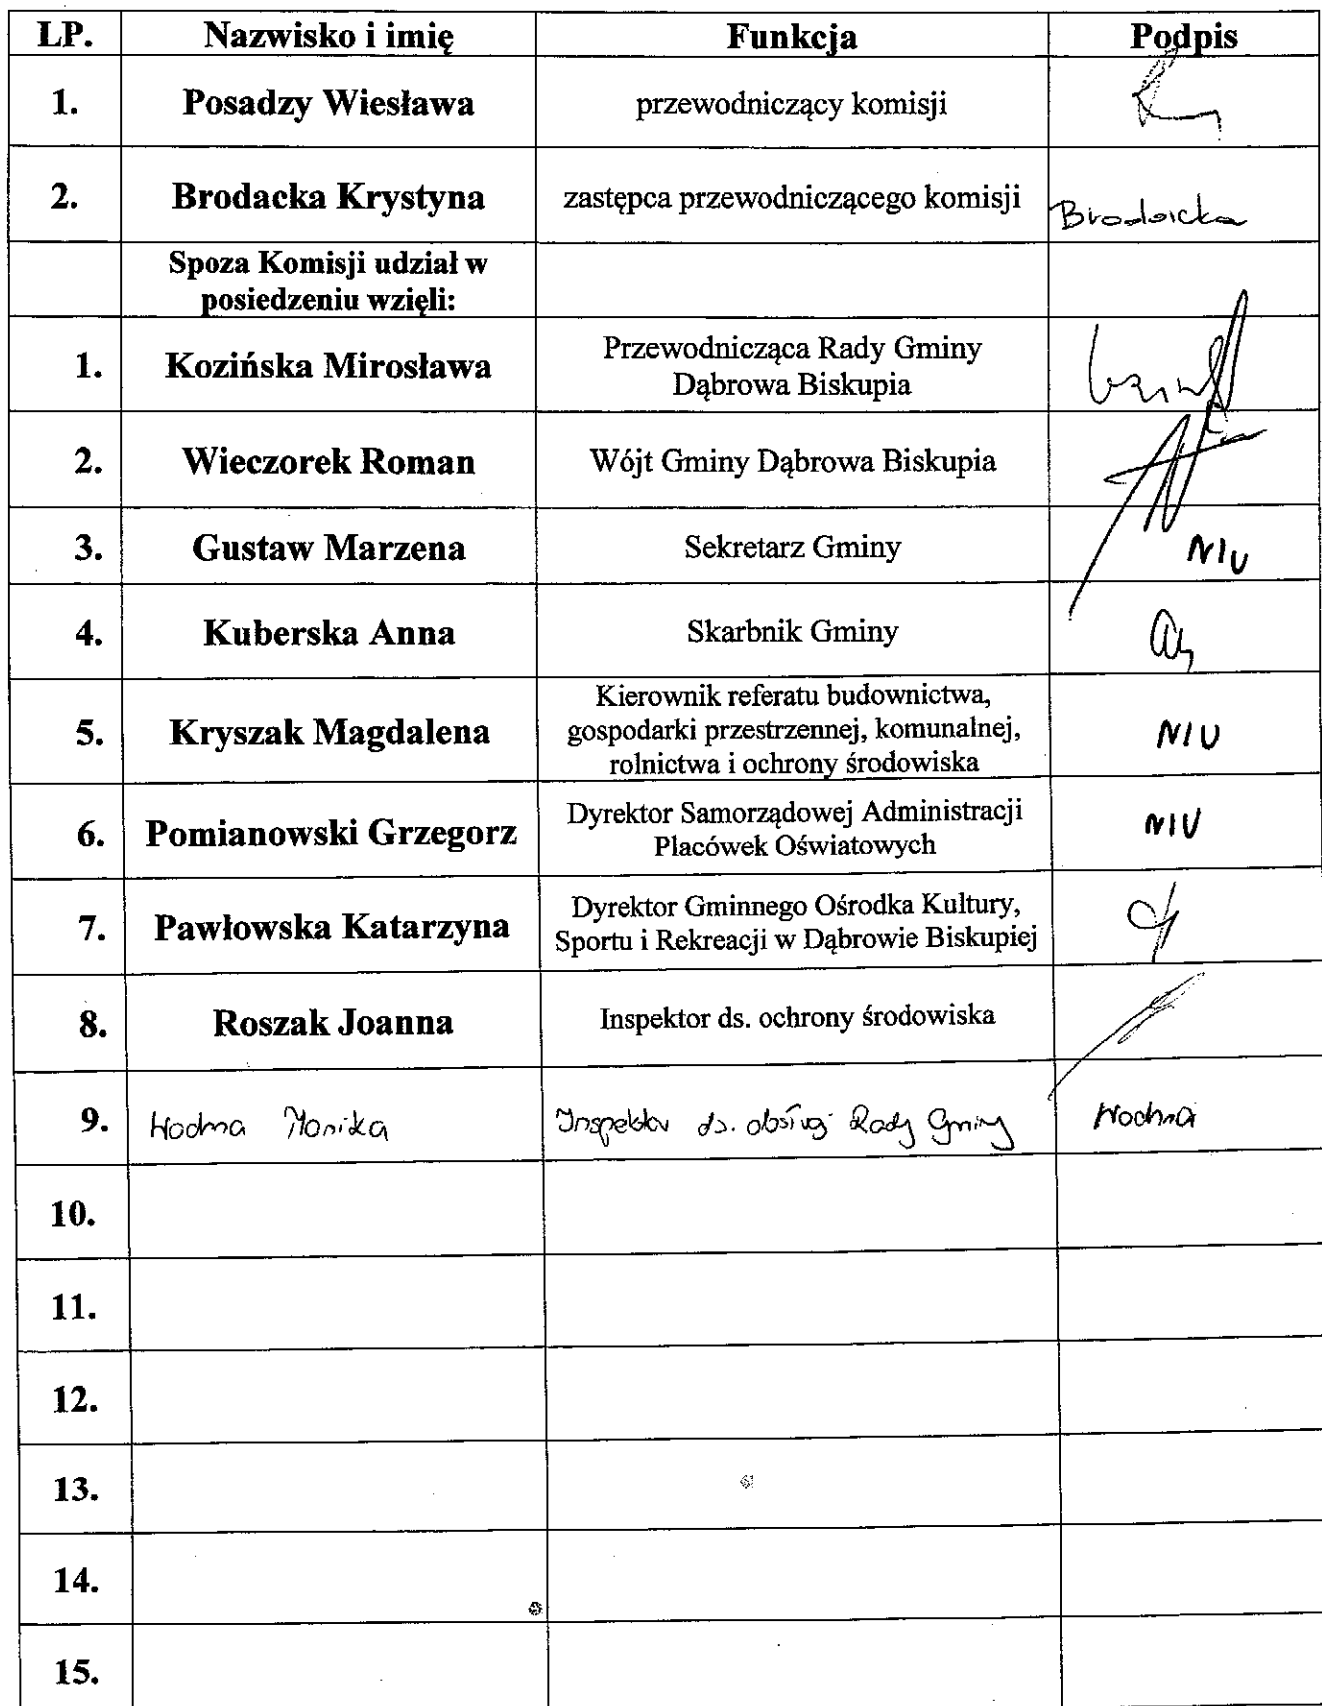 LP. Nazwisko i imię Funkcja Podpis
1. Posadzy Wiesława przewodniczący komisji
2. Brodacka Krystyna zastępca przewodniczącego komisji Brodacka
Spoza Komisji udział w
posiedzeniu wzięli:
1. Kozińska Mirosława Przewodnicząca Rady Gminy
Dąbrowa Biskupia
2. Wieczorek Roman Wójt Gminy Dąbrowa Biskupia
3. Gustaw Marzena Sekretarz Gminy NIU
4. Kuberska Anna Skarbnik Gminy
Kierownik referatu budownictwa,
5. Kryszak Magdalena gospodarki przestrzennej, komunalnej, NIU
rolnictwa i ochrony środowiska
6. Pomianowski Grzegorz Dyrektor Samorządowej Administracji NIU
Placówek Oświatowych
7. Pawłowska Katarzyna Dyrektor Gminnego Ośrodka Kultury,
Sportu i Rekreacji w Dąbrowie Biskupiej
8. Roszak Joanna Inspektor ds. ochrony środowiska
9. Monika Inspektor ds. obsługi Rady Gminy
10.
11.
12.
13.
14.
15.